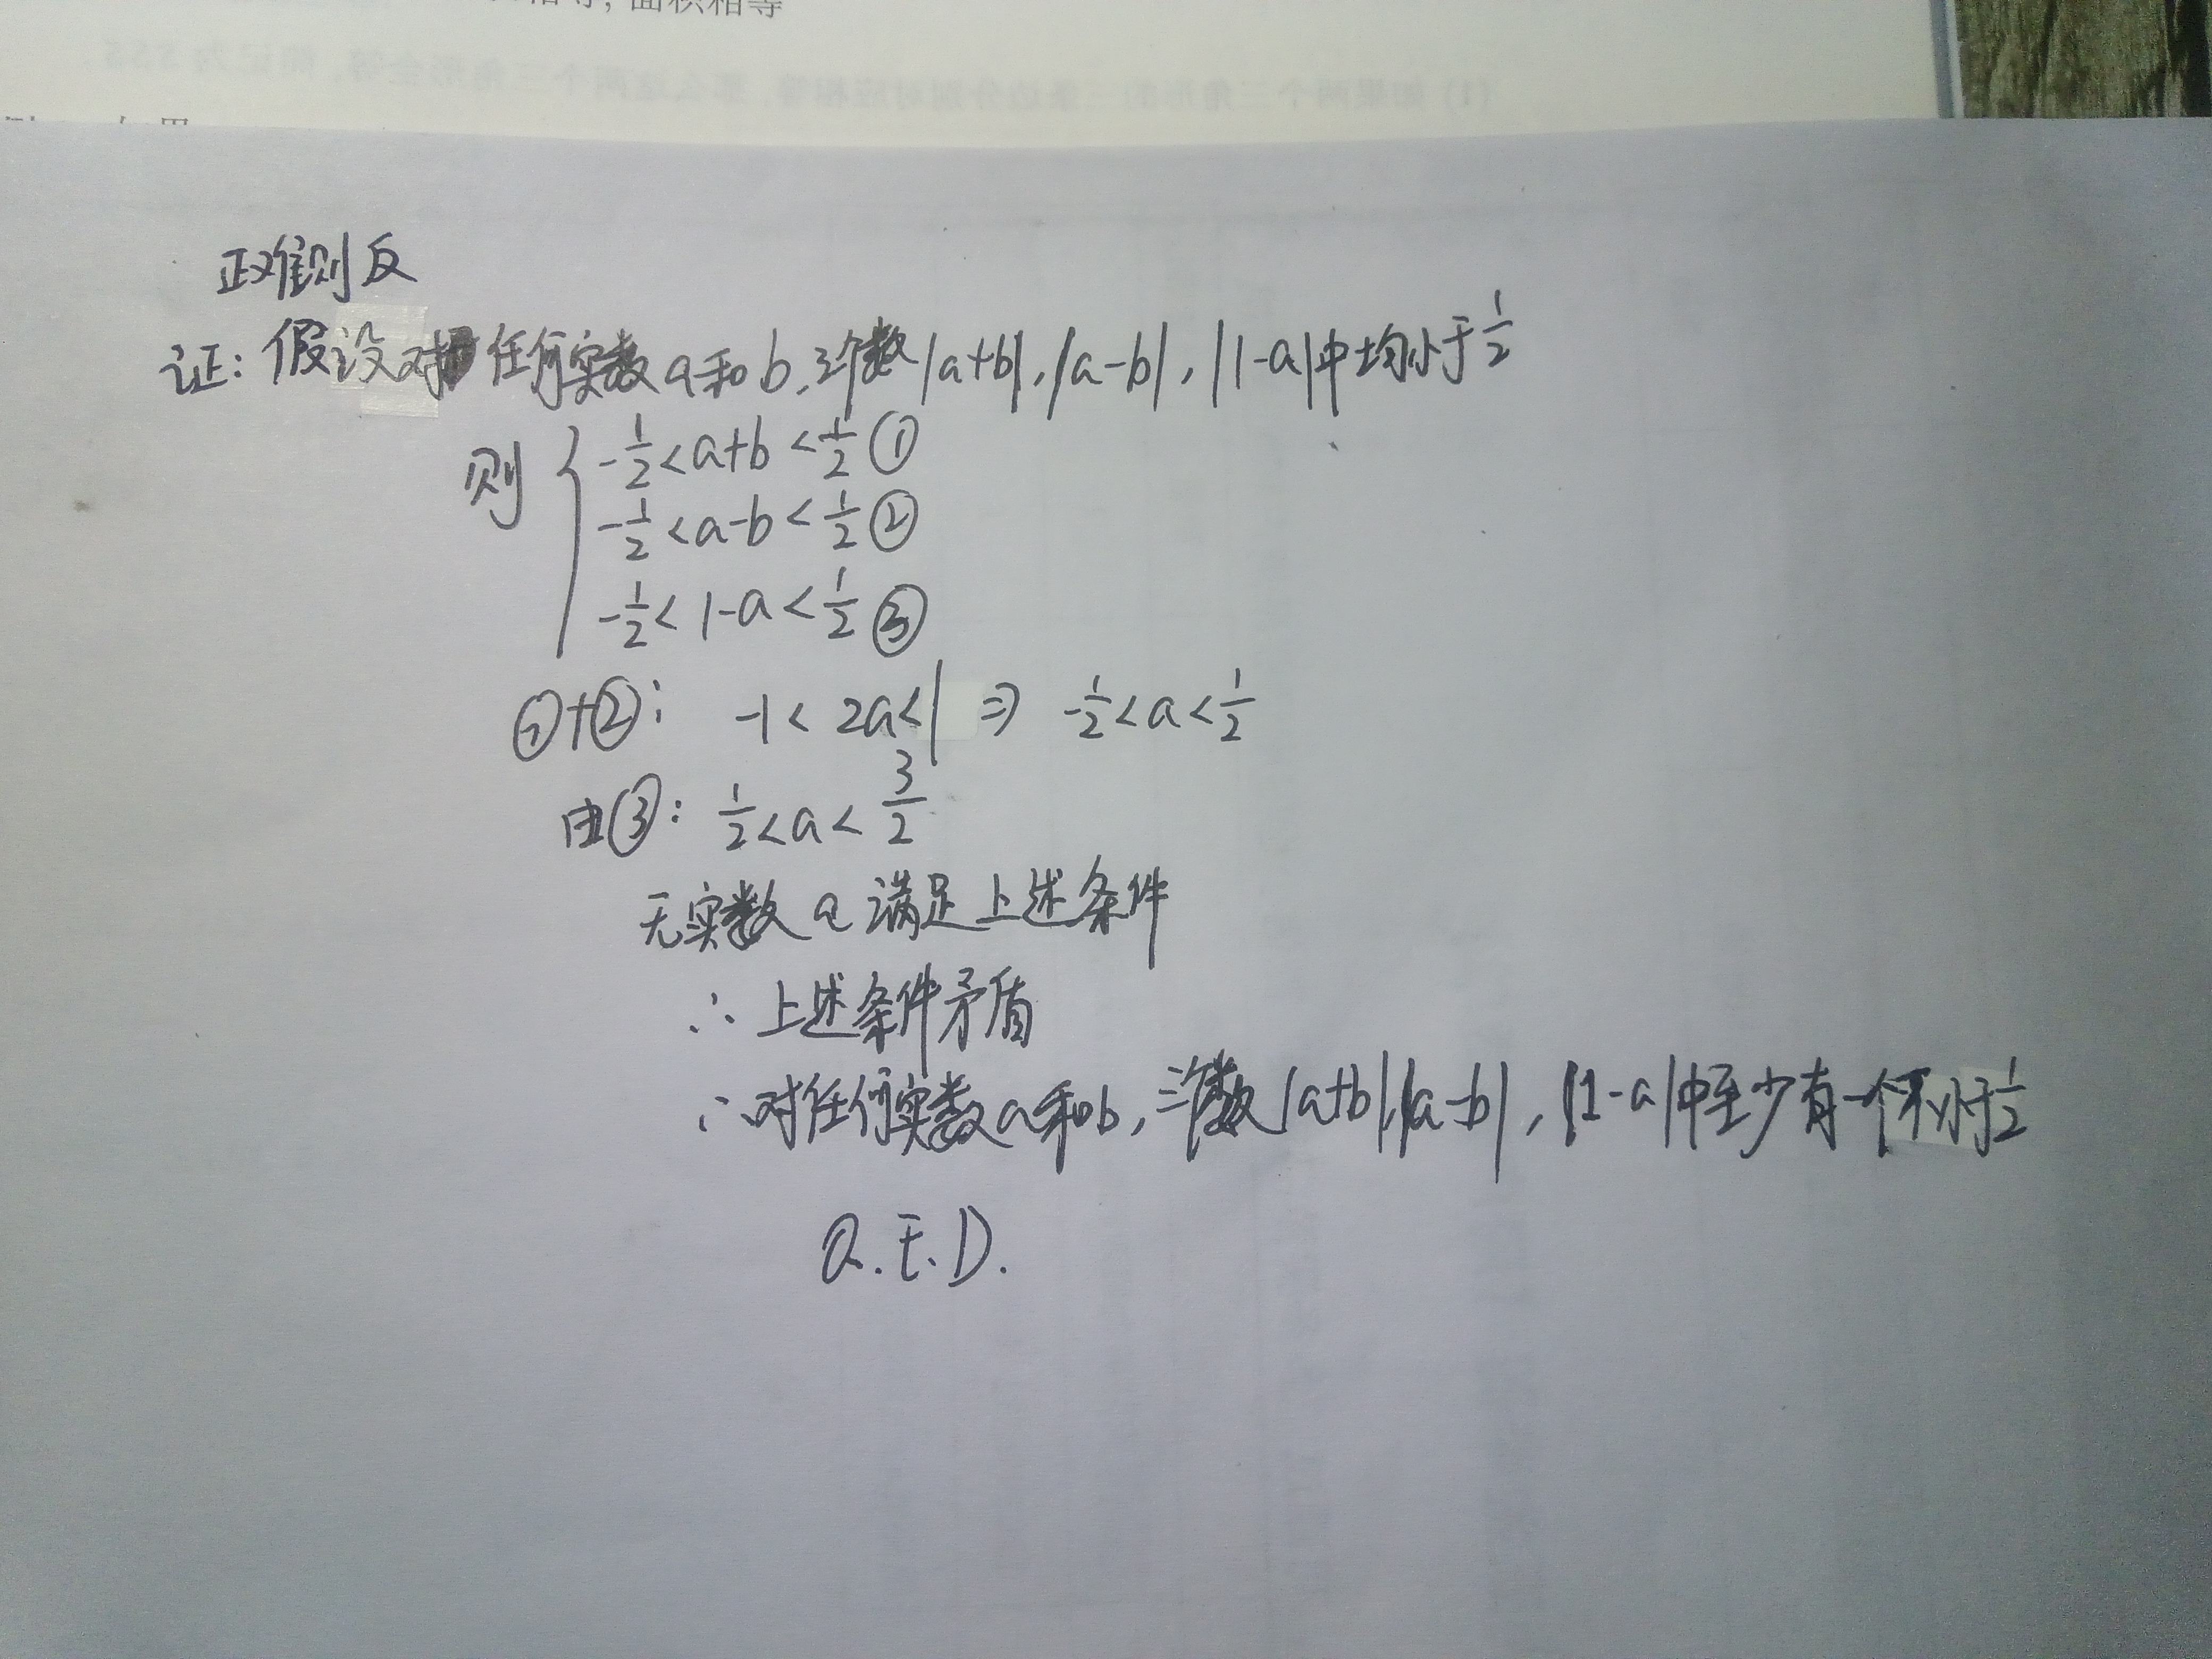 相等, 面积相等
(1) 如果两个三角形的三条边分别对应相等, 那么这两个三角形全等, 简记为SSS.
正难则反
证: 假设对任何实数a和b, 三个数|a+b|, |a-b|, |1-a|中均小于1/2
则 { -1/2 < a+b < 1/2 ①
-1/2 < a-b < 1/2 ②
-1/2 < 1-a < 1/2 ③
①+②: -1 < 2a < 1 ⇒ -1/2 < a < 1/2
由③: 1/2 < a < 3/2
无实数a满足上述条件
∴ 上述条件矛盾
∴ 对任何实数a和b, 三个数|a+b|, |a-b|, |1-a|中至少有一个不小于1/2
Q.E.D.